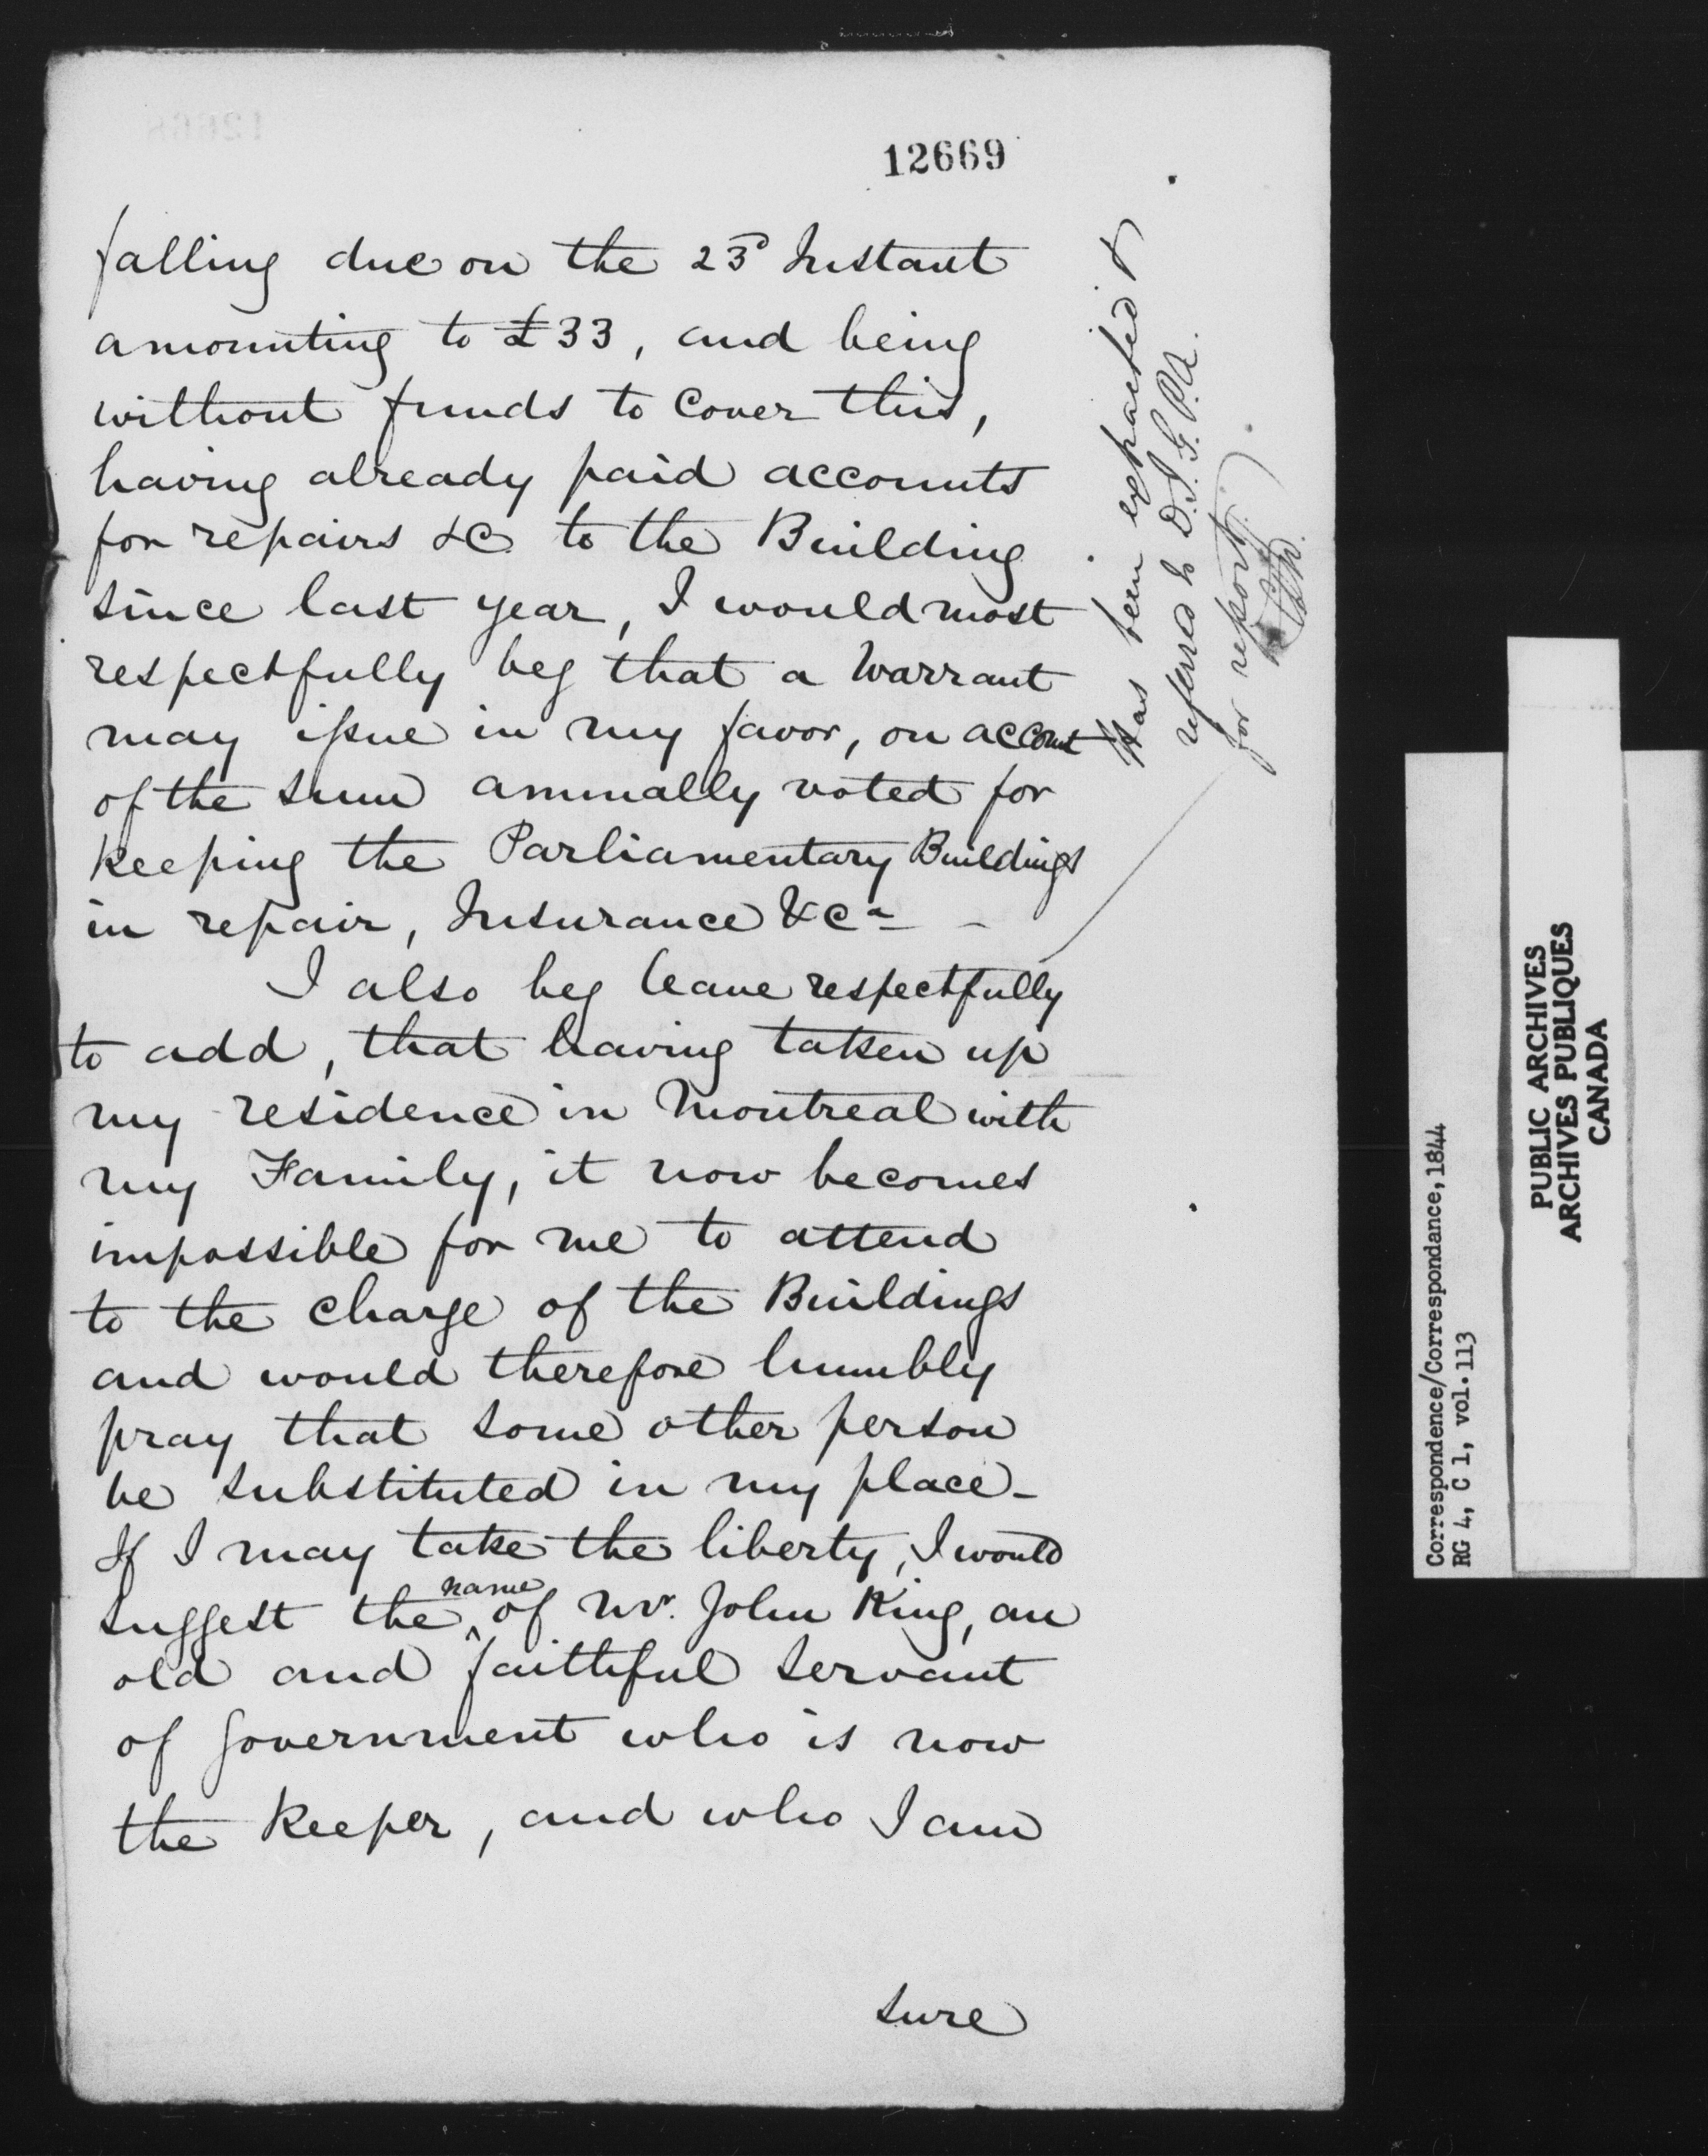 12669
falling due on the 23d Instant
amounting to £33, and being
without funds to cover this,
having already paid accounts
for repairs &c to the Building
since last year, I would most
respectfully beg that a Warrant
may issue in my favor, on account
of the sum annually voted for
keeping the Parliamentary Buildings
in repair, Insurance &ca -
I also beg leave respectfully
to add, that having taken up
my residence in Montreal with
my Family, it now becomes
impossible for me to attend
to the charge of the Buildings
and would therefore humbly
pray that some other person
be substituted in my place -
If I may take the liberty, I would
suggest the name of Mr. John King, an
old and faithful servant
of Government who is now
the Keeper, and who I am
sure
Has been extracted &
referred to D.I.G.P.A.
for report.
Correspondence/Correspondance, 1844
RG 4, C 1, vol. 113
PUBLIC ARCHIVES
ARCHIVES PUBLIQUES
CANADA